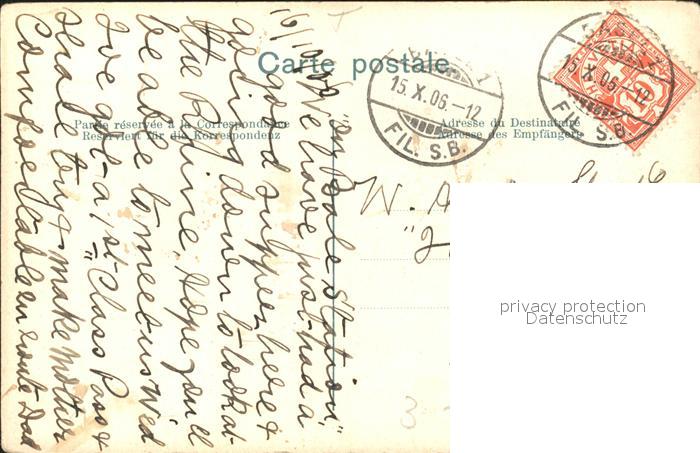 Carte postale
Partie réservée à la Correspondance
Reserviert für die Korrespondenz
Adresse du Destinataire
Adresse des Empfängers
15.X.06.-12
FIL. S.B.
15.X.06.-12
FIL. S.B.
"on Bale Station"
We have just had a
good supper here &
going down to look at
the Rhine, Hope you'll
be able to meet us Wed
I've got a 1st Class Pass &
shall try & make Mother
Comfortable en route Dad
W. A
privacy protection
Datenschutz
3